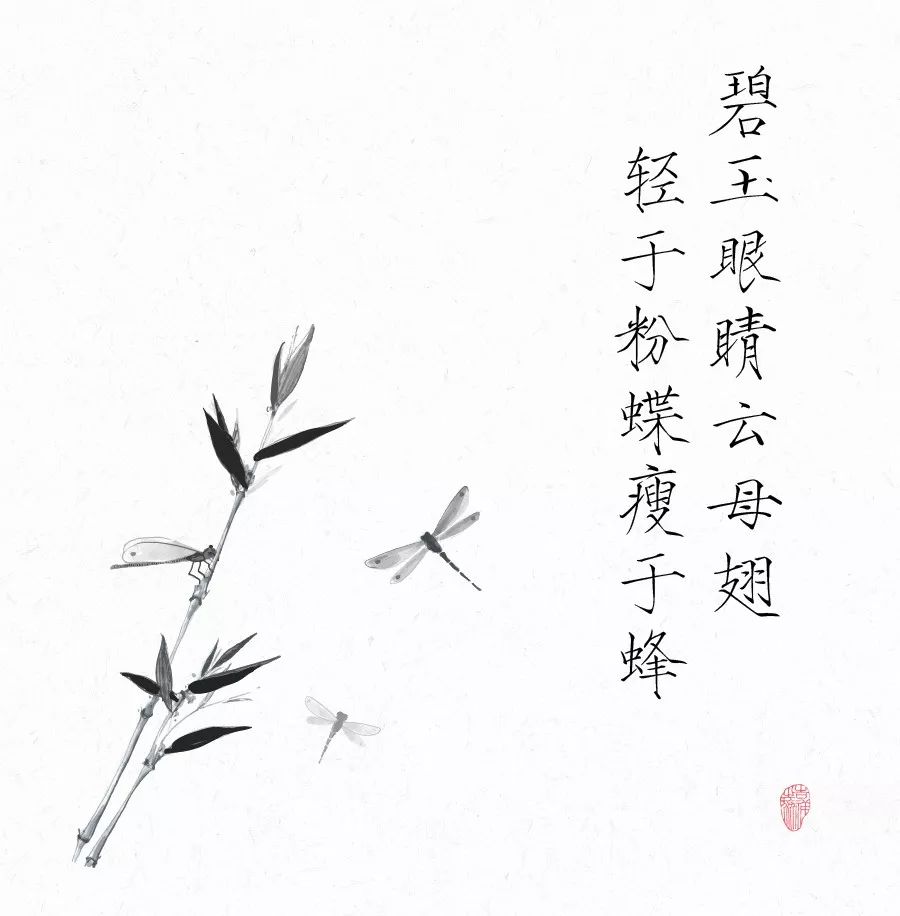 碧玉眼睛云母翅
轻于粉蝶瘦于蜂